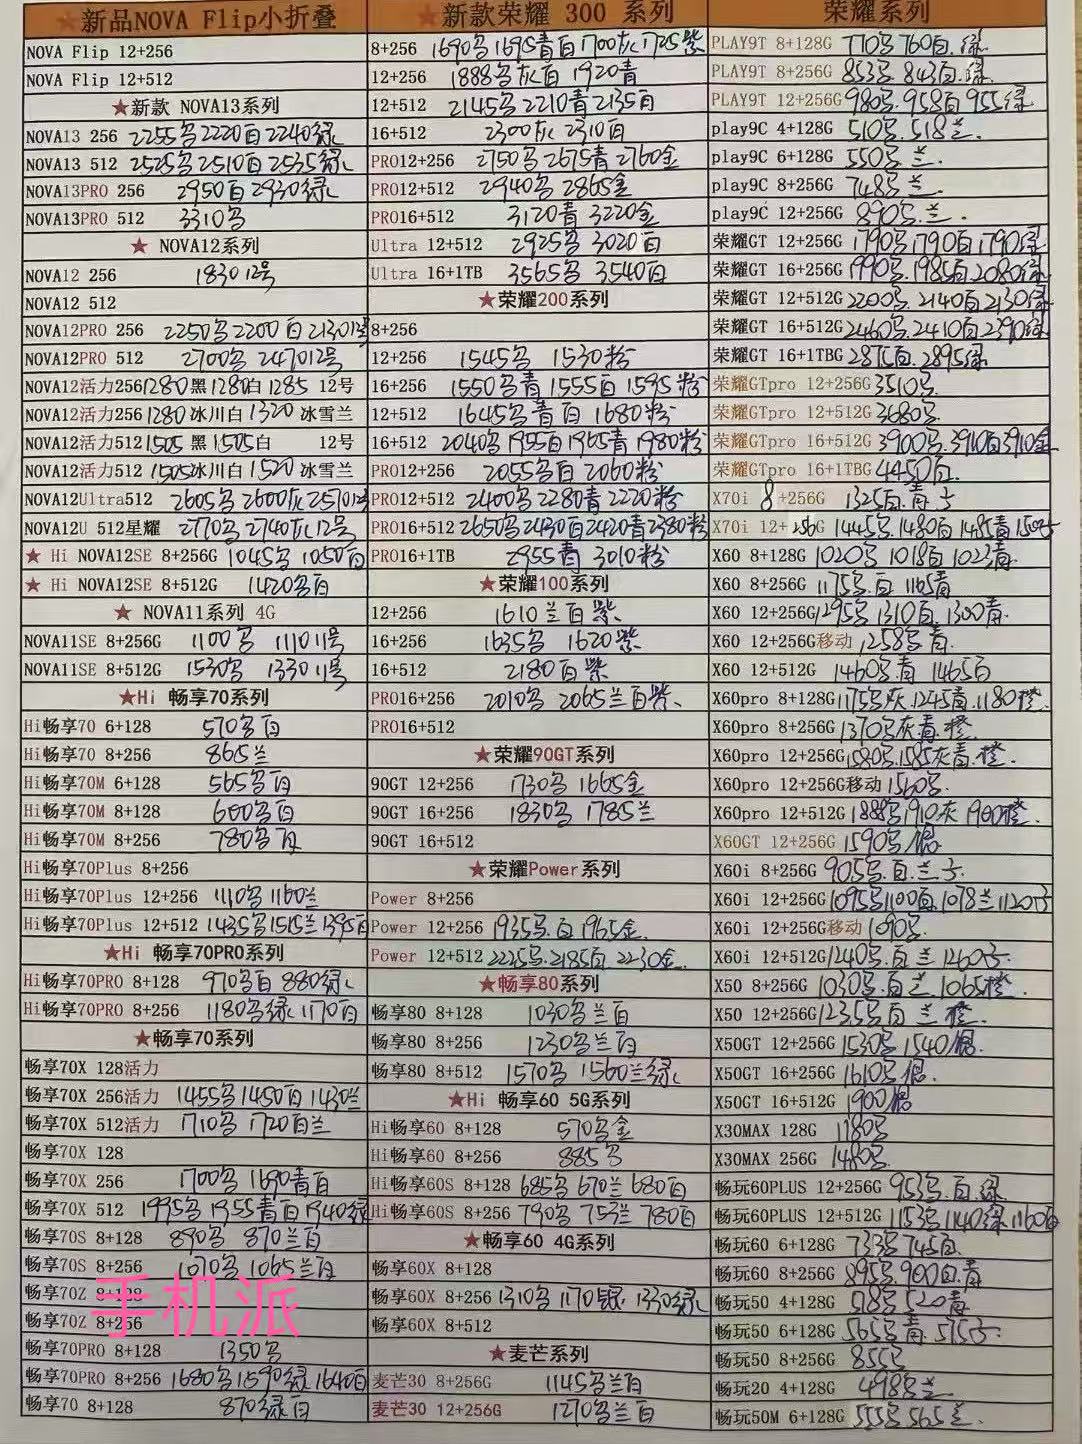 ★新品NOVA Flip小折叠
NOVA Flip 12+256
NOVA Flip 12+512
★新款 NOVA13系列
NOVA13 256 2255另2220百2240绿
NOVA13 512 2525另2510百2535绿
NOVA13PRO 256 2950百2930绿
NOVA13PRO 512 3310另
★ NOVA12系列
NOVA12 256 1830 12号
NOVA12 512
NOVA12PRO 256 2250另2200百2130 12号
NOVA12PRO 512 2700另2470 12号
NOVA12活力256 1280黑1280白1285 12号
NOVA12活力256 1280冰川白1320冰雪兰
NOVA12活力512 1505黑1505白 12号
NOVA12活力512 1505冰川白1520冰雪兰
NOVA12Ultra512 2605另2600灰2570 12号
NOVA12U 512星耀 2770另2740灰12号
★ Hi NOVA12SE 8+256G 1045另1050百
★ Hi NOVA12SE 8+512G 1420另百
★ NOVA11系列 4G
NOVA11SE 8+256G 1100另 1110 11号
NOVA11SE 8+512G 1530另 1330 11号
★Hi 畅享70系列
Hi畅享70 6+128 570另百
Hi畅享70 8+256 865兰
Hi畅享70M 6+128 565另百
Hi畅享70M 8+128 600另百
Hi畅享70M 8+256 780另百
Hi畅享70Plus 8+256
Hi畅享70Plus 12+256 1110另1160兰
Hi畅享70Plus 12+512 1435另1515兰1395百
★Hi 畅享70PRO系列
Hi畅享70PRO 8+128 970另百880绿
Hi畅享70PRO 8+256 1180另绿1170百
★畅享70系列
畅享70X 128活力
畅享70X 256活力 1455另1450百1430兰
畅享70X 512活力 1710另1720百兰
畅享70X 128
畅享70X 256 1700另1690青百
畅享70X 512 1995另1955青百1940绿
畅享70S 8+128 890另 870兰百
畅享70S 8+256 1070另1065兰百
畅享70Z 8+128
手机派
畅享70Z 8+256
畅享70PRO 8+128 1350另
畅享70PRO 8+256 1680另1590绿1640百
畅享70 8+128 870绿百
★新款荣耀 300 系列
8+256 1690另1695青百1700灰1725紫
12+256 1888另灰百 1920青
12+512 2145另2210青2135百
16+512 2300灰2310百
PRO12+256 2750另2675青2760金
PRO12+512 2940另2865金
PRO16+512 3120青3220金
Ultra 12+512 2925另3020百
Ultra 16+1TB 3565另3540百
★荣耀200系列
8+256
12+256 1545另 1530粉
16+256 1550另青1555百1595粉
12+512 1645另青百1680粉
16+512 2040另1955百1965青1980粉
PRO12+256 2055另百2060粉
PRO12+512 2400另2280青2220粉
PRO16+512 2650另2430百2420青2380粉
PRO16+1TB 2955青 3010粉
★荣耀100系列
12+256 1610兰百紫
16+256 1635另 1620紫
16+512 2180百紫
PRO16+256 2010另2065兰百紫
PRO16+512
★荣耀90GT系列
90GT 12+256 1730另 1665金
90GT 16+256 1830另 1785兰
90GT 16+512
★荣耀Power系列
Power 8+256
Power 12+256 1935另.百1965金.
Power 12+512 2225另.2185百.2230金.
★畅享80系列
畅享80 8+128 1030另兰百
畅享80 8+256 1230另兰百
畅享80 8+512 1570另1560兰绿
★Hi 畅享60 5G系列
Hi畅享60 8+128 570另金
Hi畅享60 8+256 885另
Hi畅享60S 8+128 685另670兰680百
Hi畅享60S 8+256 790另753兰780百
★畅享60 4G系列
畅享60X 8+128
畅享60X 8+256 1310另1170银1330绿
畅享60X 8+512
★麦芒系列
麦芒30 8+256G 1145另兰百
麦芒30 12+256G 1270另兰百
荣耀系列
PLAY9T 8+128G 770另760百.绿
PLAY9T 8+256G 853另.843百.绿
PLAY9T 12+256G 980另.958百955绿
play9C 4+128G 510另.518兰.
play9C 6+128G 550另.兰.
play9C 8+256G 748另.兰.
play9C 12+256G 890另.兰.
荣耀GT 12+256G 1790另1790百1790绿
荣耀GT 16+256G 1990另.1985百2080绿
荣耀GT 12+512G 2200另.2140百2130绿
荣耀GT 16+512G 2460另.2410百2390绿
荣耀GT 16+1TBG 2875百.2895绿
荣耀GTpro 12+256G 3510另
荣耀GTpro 12+512G 3680另
荣耀GTpro 16+512G 3900另.3910百3910金
荣耀GTpro 16+1TBG 4450百.
X70i 8+256G 1325百.青子
X70i 12+256G 1445另.1480百1485青150
X60 8+128G 1020另1018百1023青.
X60 8+256G 1175另.百1165青
X60 12+256G 1295另.1310百.1300青.
X60 12+256G移动 1258另青.
X60 12+512G 1460另.青1465百
X60pro 8+128G 1175另灰.1245青.1180橙.
X60pro 8+256G 1370另灰青.橙
X60pro 12+256G 1580另.1585灰青.橙.
X60pro 12+256G移动 1560另.
X60pro 12+512G 1885另1910灰1900橙.
X60GT 12+256G 1590另/银.
X60i 8+256G 905另.百.兰子.
X60i 12+256G 1095另1100百1078兰1120子
X60i 12+256G移动 1090另.
X60i 12+512G 1240另.百兰1260子.
X50 8+256G 1030另.百兰1065橙.
X50 12+256G 1235另百兰橙.
X50GT 12+256G 1530另1540银.
X50GT 16+256G 1610另银.
X50GT 16+512G 1900银
X30MAX 128G 1180另
X30MAX 256G 1480另.
畅玩60PLUS 12+256G 953另.百.绿
畅玩60PLUS 12+512G 1153另1140绿1160百
畅玩60 6+128G 733另745百.
畅玩60 8+256G 895另.900百.青
畅玩50 4+128G 518另520青
畅玩50 6+128G 565另青.575子.
畅玩50 8+256G 855另
畅玩20 4+128G 498另兰.
畅玩50M 6+128G 555另565兰.